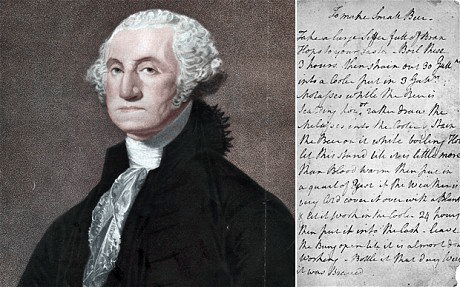 To make Small Beer
Take a large Siffer full of Bran
Hops to your Taste - Boil these
3 hours. then strain out 30 Gall.ns
into a Cooler put in 3 Gall.ns
Molasses while the Beer is
Scalding hot or rather draw the
Molasses into the Cooler & Strain
the Beer on it while boiling Hot
let this stand till it is little more
than Blood warm then put in
a quart of Yest if the Weather is
very Cold cover it over with a Blanket
& let it work in the Cooler 24 hours
then put it into the Cask - leave
the Bung open till it is almost done
Working - Bottle it that day Week
it was Brewed